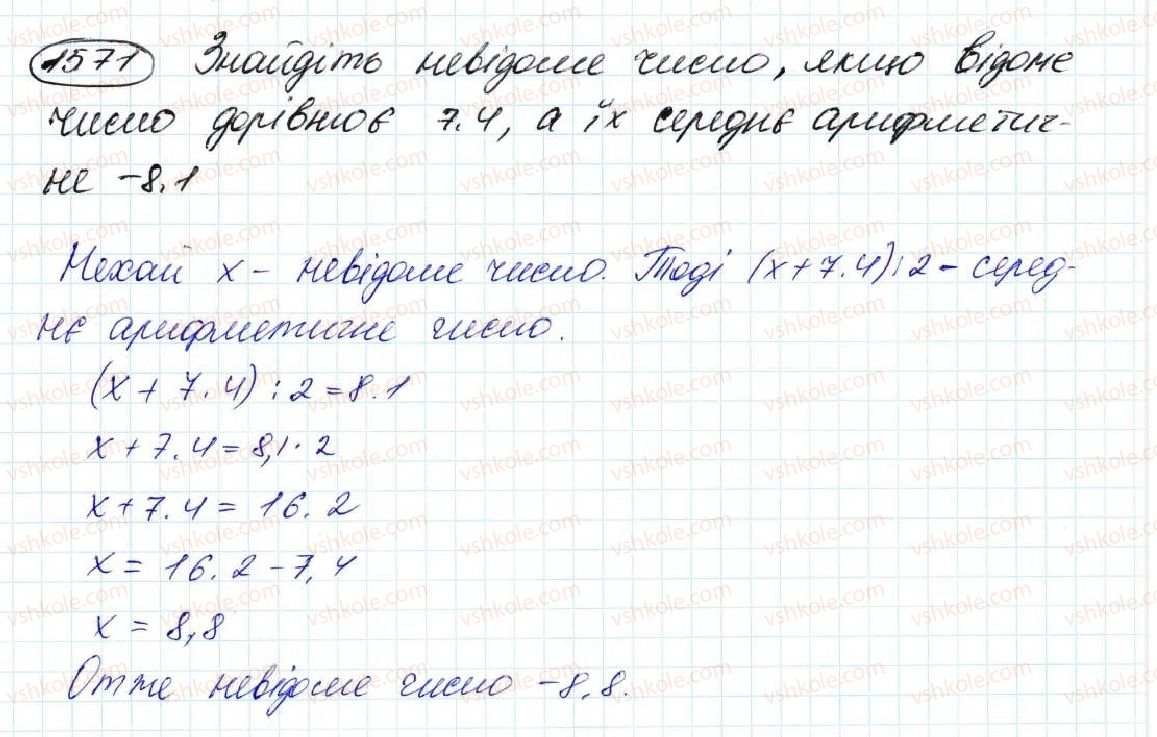 1571 Знайдіть невідоме число, якщо відоме
число дорівнює 7.4, а їх середнє арифметич-
не -8.1
Нехай x - невідоме число. Тоді (x+7.4):2 - серед-
нє арифметичне число.
(x + 7.4) : 2 = 8.1
x + 7.4 = 8,1 · 2
x + 7.4 = 16.2
x = 16.2 - 7,4
x = 8,8
Отже невідоме число -8,8.
vshkole.com